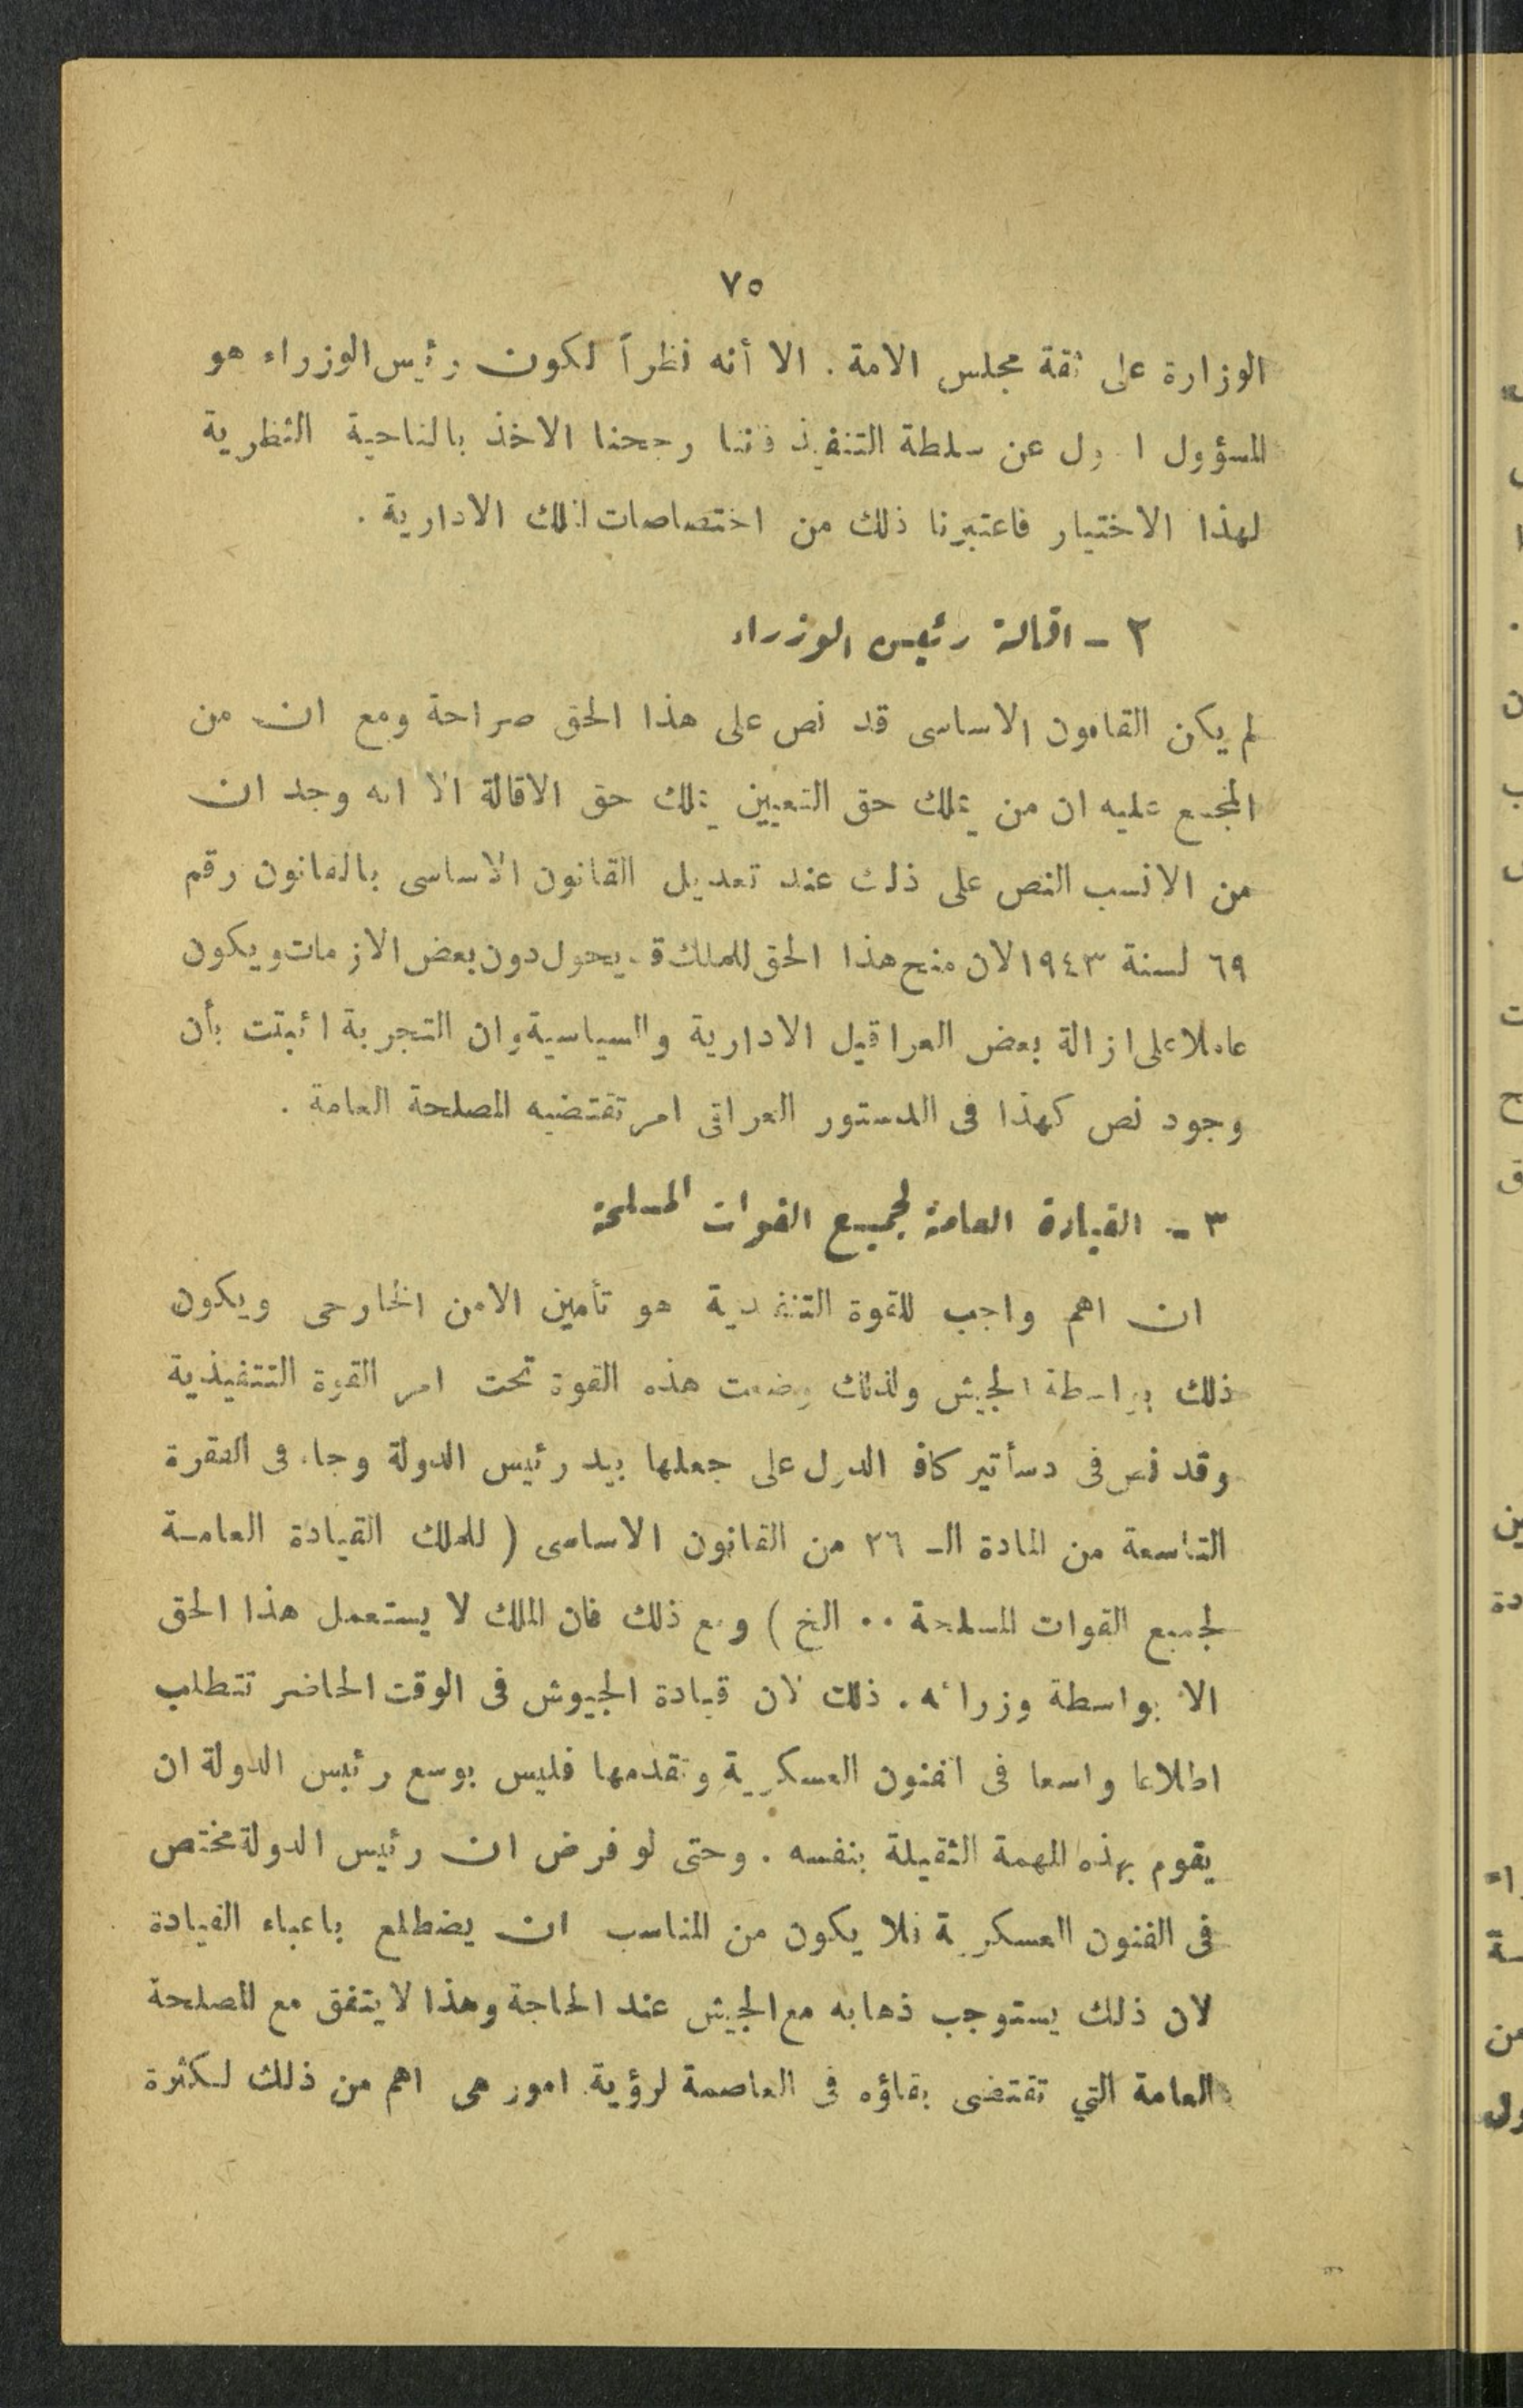 ٧٥
الوزارة على ثقة مجلس الامة . الا أنه نظراً لكون رئيس الوزراء هو
المسؤول الاول عن سلطة التنفيذ فاننا رجحنا الاخذ بالناحية النظرية
لهذا الاختيار فاعتبرنا ذلك من اختصاصات الملك الادارية .
٢ - اقالة رئيس الوزراء
لم يكن القانون الاساسى قد نص على هذا الحق صراحة ومع ان من
المجمع عليه ان من يملك حق التعيين يملك حق الاقالة الا انه وجد ان
من الانسب النص على ذلك عند تعديل القانون الاساسى بالقانون رقم
٦٩ لسنة ١٩٤٣ لان منح هذا الحق للملك قد يحول دون بعض الازمات ويكون
عاملا على ازالة بعض العراقيل الادارية والسياسية وان التجربة اثبتت بأن
وجود نص كهذا فى الدستور العراقى امر تقتضيه المصلحة العامة .
٣ - القيادة العامة لجميع القوات المسلحة
ان اهم واجب للقوة التنفيذية هو تأمين الامن الخارجى ويكون
ذلك بواسطة الجيش ولذلك وضعت هذه القوة تحت امر القوة التنفيذية
وقد نص فى دسأتير كافة الدول على جعلها بيد رئيس الدولة وجاء فى الفقرة
التاسعة من المادة الـ ٢٦ من القانون الاساسى ( للملك القيادة العامـة
لجميع القوات المسلحة ٠٠ الخ ) ومع ذلك فان الملك لا يستعمل هذا الحق
الا بواسطة وزرائه . ذلك لان قيادة الجيوش فى الوقت الحاضر تتطلب
اطلاعا واسعا فى الفنون العسكرية وتقدمها فليس بوسع رئيس الدولة ان
يقوم بهذه المهمة الثقيلة بنفسه . وحتى لو فرض ان رئيس الدولة مختص
فى الفنون العسكرية فلا يكون من المناسب ان يضطلع باعباء القيادة
لان ذلك يستوجب ذهابه مع الجيش عند الحاجة وهذا لا يتفق مع المصلحة
العامة التي تقتضى بقاؤه فى العاصمة لرؤية امور هى اهم من ذلك لكثرة